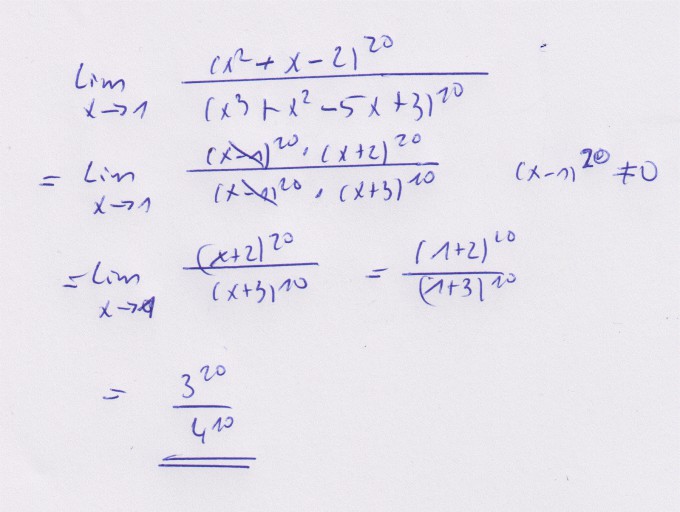 lim x→1 (x²+x-2)²⁰ / (x³+x²-5x+3)¹⁰
= lim x→1 (x-1)²⁰·(x+2)²⁰ / (x-1)²⁰·(x+3)¹⁰ (x-1)²⁰≠0
= lim x→1 (x+2)²⁰ / (x+3)¹⁰ = (1+2)²⁰ / (1+3)¹⁰
= 3²⁰ / 4¹⁰